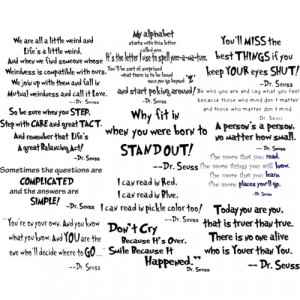 We are all a little weird and
Life's a little weird.
And when we find someone whose
Weirdness is compatible with ours,
We join up with them and fall in
Mutual weirdness and call it Love.
--Dr. Seuss
My alphabet
starts with this letter
called yuzz.
It's the letter I use to spell yuzz-a-ma-tuzz.
You'll be sort of surprised
what there is to be found
once you go beyond 'Z'
and start poking around!
--Dr. Seuss
You'll MISS the
best THINGS if you
keep YOUR eyes SHUT!
--Dr. Seuss
Be who you are and say what you feel
because those who mind don't matter
and those who matter don't mind.
--Dr. Seuss
So be sure when you STEP,
Step with CARE and great TACT.
And remember that Life's
A great Balancing Act!
--Dr. Seuss
Why fit in
when you were born to
STAND OUT!
--Dr. Seuss
A person's a person,
no matter how small.
--Dr. Seuss
Sometimes the questions are
COMPLICATED
and the answers are
SIMPLE!
--Dr. Seuss
I can read in Red.
I can read in Blue.
I can read in pickle color too!
--Dr. Seuss
The more that you read,
The more things you will know.
The more you learn,
The more places you'll go.
--Dr. Seuss
"You're on your own. And you know
what you know. And YOU are the
one who'll decide where to GO..."
--Dr. Seuss
Don't Cry
Because It's Over.
Smile Because It
Happened.
--Dr. Seuss
Today you are you,
that is truer than true.
There is no one alive
who is Youer than You.
--Dr. Seuss